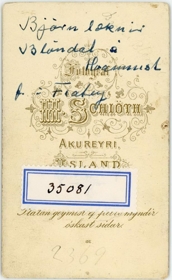 Björn læknir
Blöndal á
Hvammst
f. í Flatey
Fotograf
H. Schiöth
AKUREYRI.
ISLAND
35081
Platan geymist ef fleiri myndir
óskast síðar.
2363